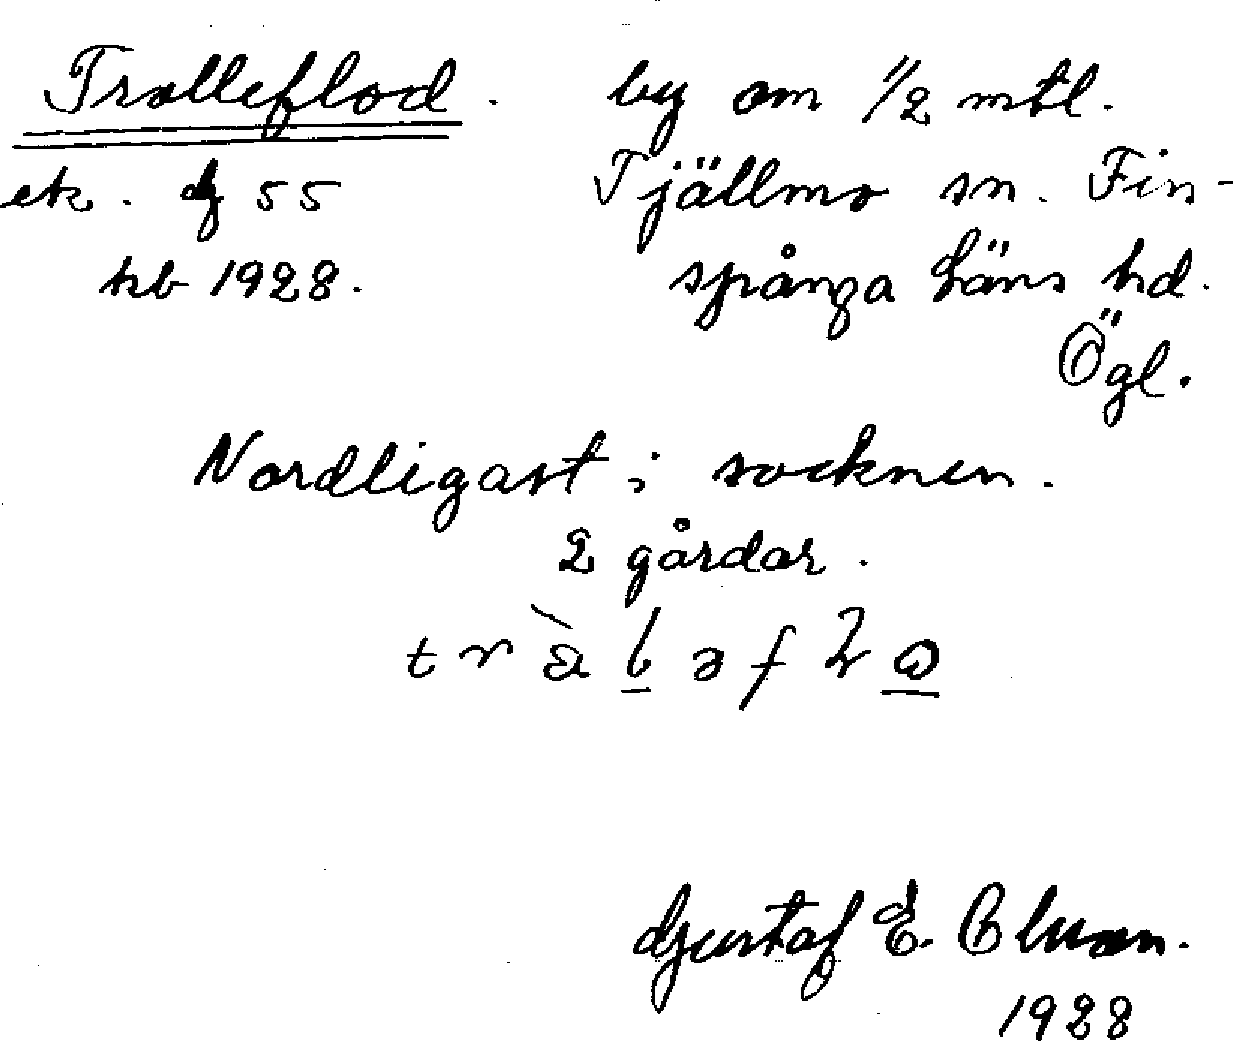 Trolleflod. by om 1/2 mtl.
ek. df 55 Tjällmo sn. Fin-
kb 1928. spånga Läns hd.
Ögl.
Nordligast i socknen.
2 gårdar.
Gustaf E. Olson.
1928